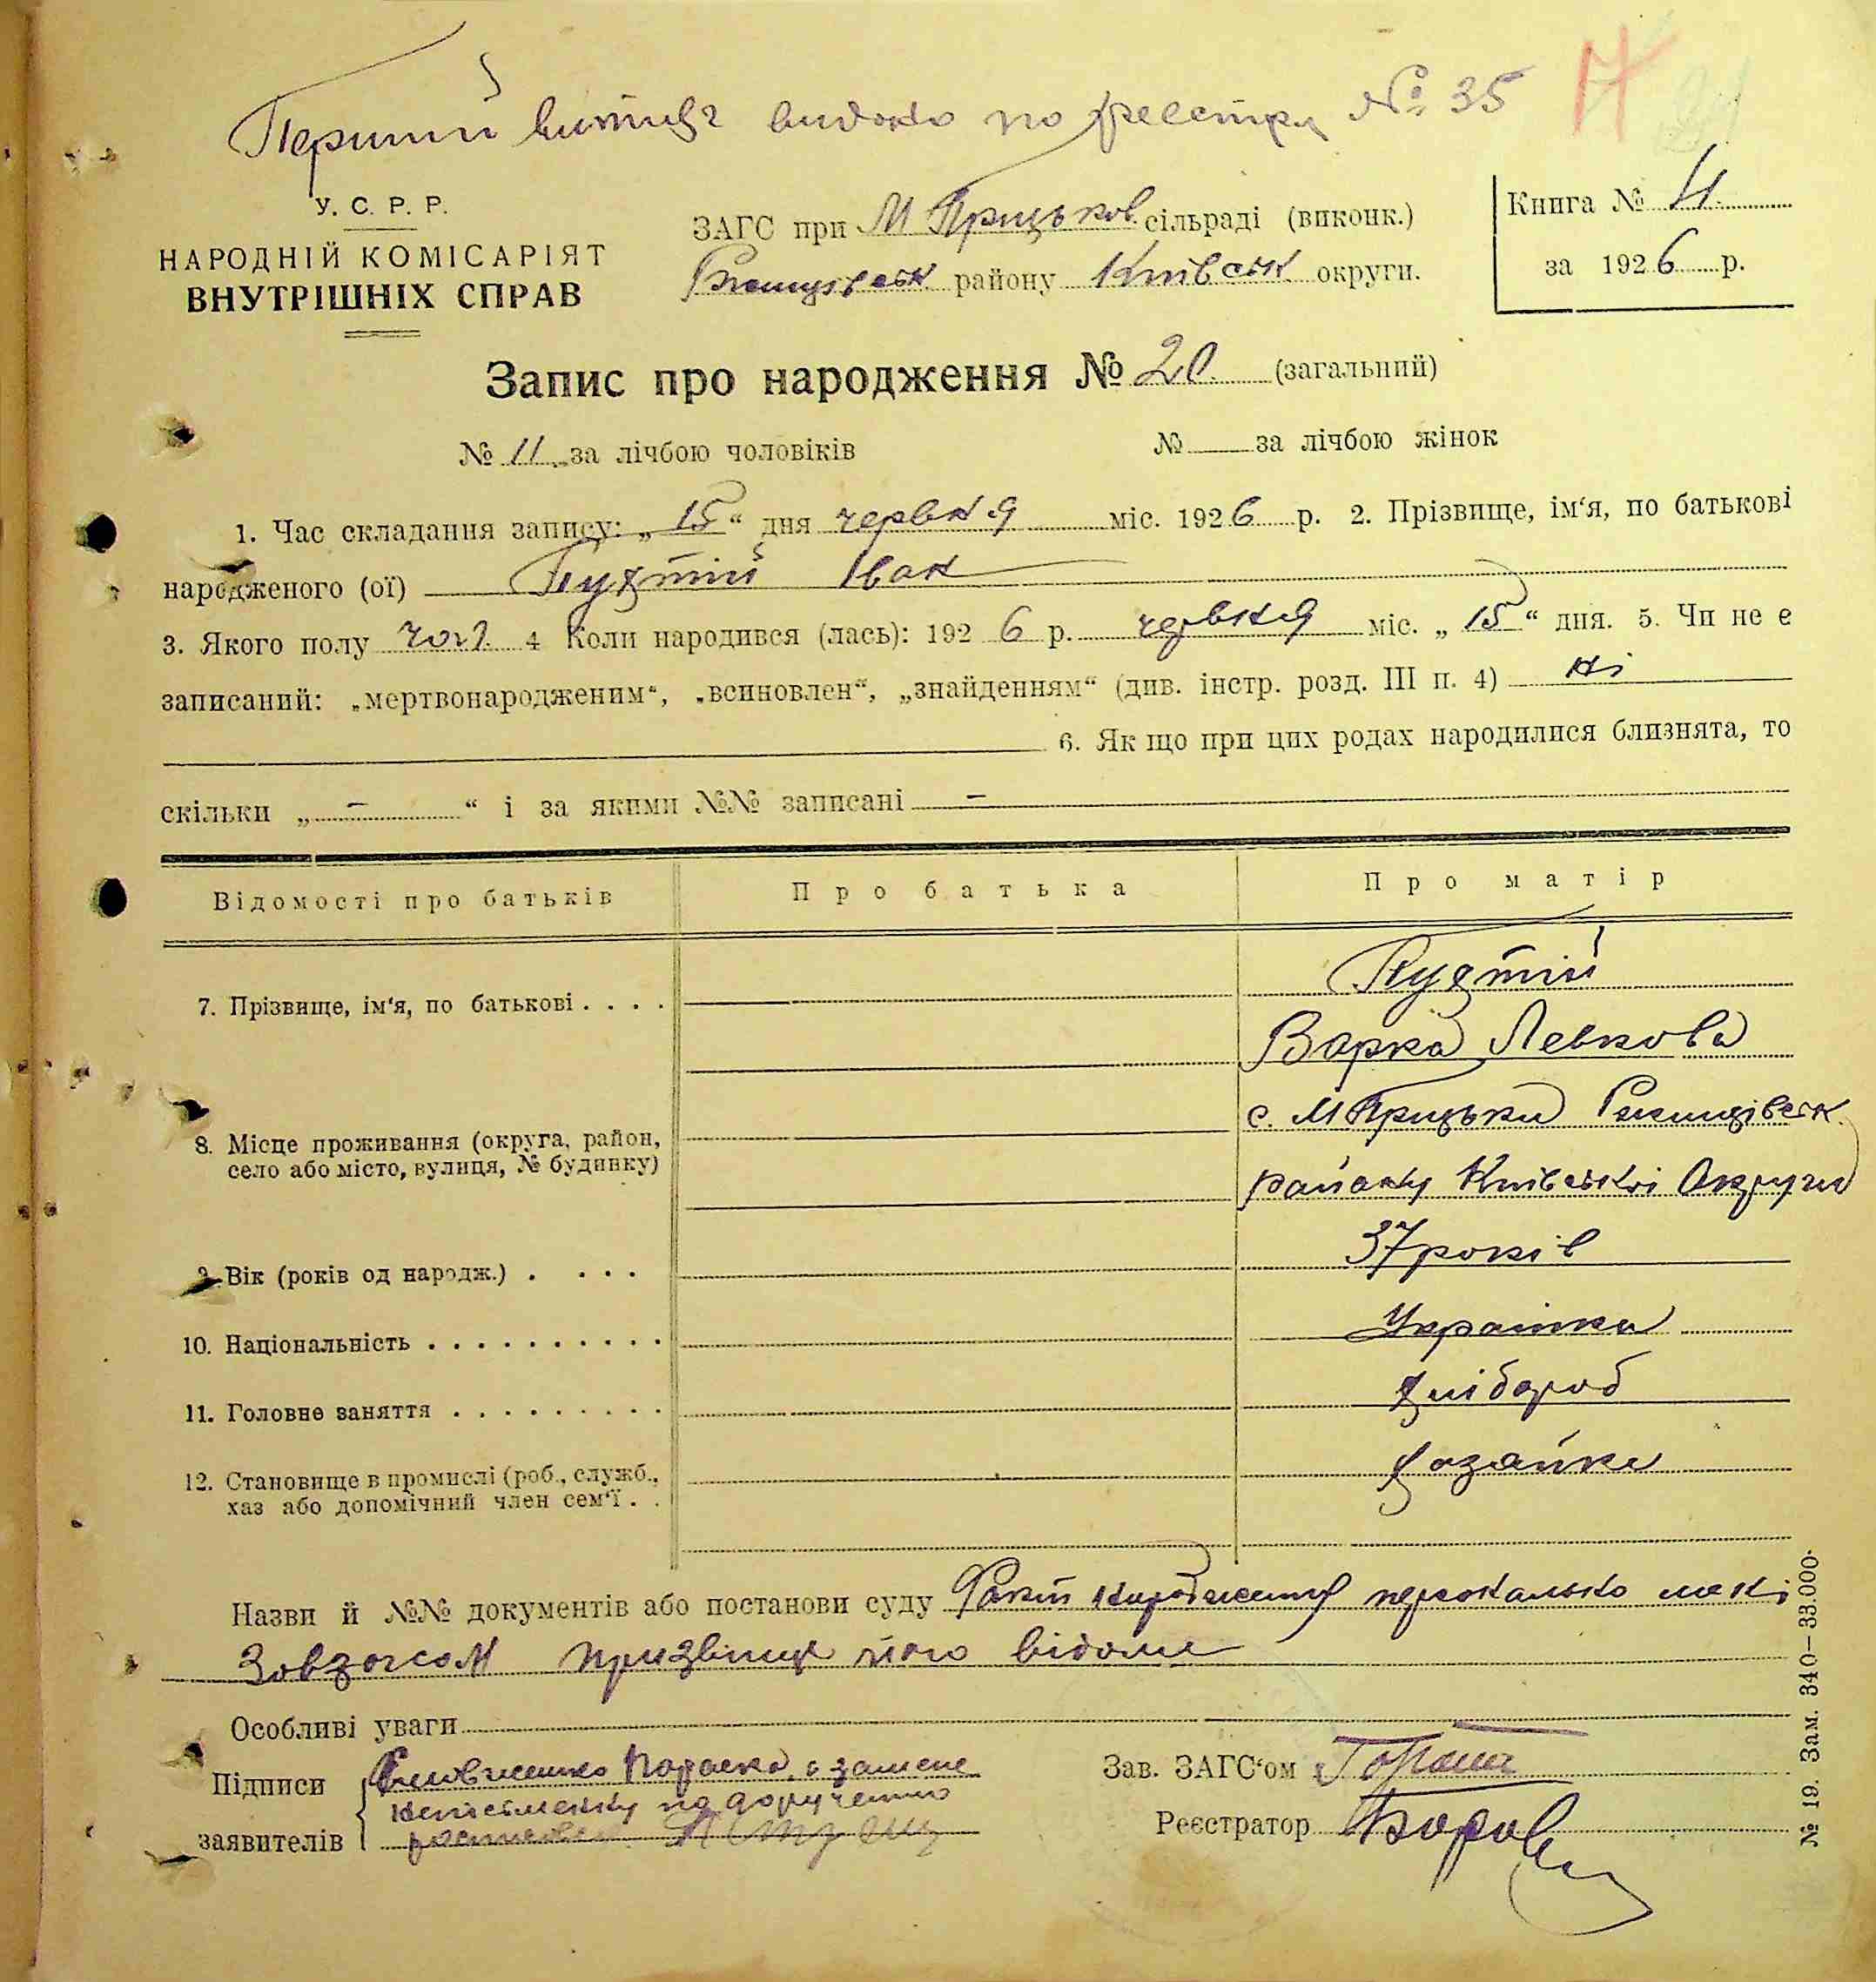 Перший витяг видано по реєстру № 35
17
У. С. Р. Р.
НАРОДНІЙ КОМІСАРІЯТ
ВНУТРІШНІХ СПРАВ
ЗАГС при М Прицьков. сільраді (виконк.)
Ржищівськ району Київськ округи.
Книга № 4.
за 1926 р.
Запис про народження № 20. (загальний)
№ 11 за лічбою чоловіків
№ за лічбою жінок
1. Час складання запису: „15“ дня червня міс. 1926 р. 2. Прізвище, ім‘я, по батькові
народженого (ої) Пухтій Іван
3. Якого полу чол. 4 Коли народився (лась): 1926 р. червня міс. „15“ дня. 5. Чи не є
записаний: „мертвонародженим“, „всиновлен“, „знайденням“ (див. інстр. розд. III п. 4) ні
6. Як що при цих родах народилися близнята, то
скільки „ – “ і за якими №№ записані –
Відомості про батьків Про батька Про матір
7. Прізвище, ім‘я, по батькові . . . . Пухтій
Варка Левкова
с. М Прицьки Ржищівськ.
8. Місце проживання (округа, район,
село або місто, вулиця, № будинку)
району Київської Округи
9. Вік (років од народж.) . . . . 37 років
10. Національність . . . . . . . . . . Українка
11. Головне заняття . . . . . . . . . хлібороб
12. Становище в промислі (роб., служб.,
хаз або допомічний член сем‘ї . .
хазяйка
Назви й №№ документів або постанови суду Факт народження персонально
Завзагсом призвіще його відоме
Особливі уваги
Підписи
заявителів
Параска, а замене
неписьменну по дорученню
Зав. ЗАГС‘ом
Реєстратор
№ 19. Зам. 340—33.000.